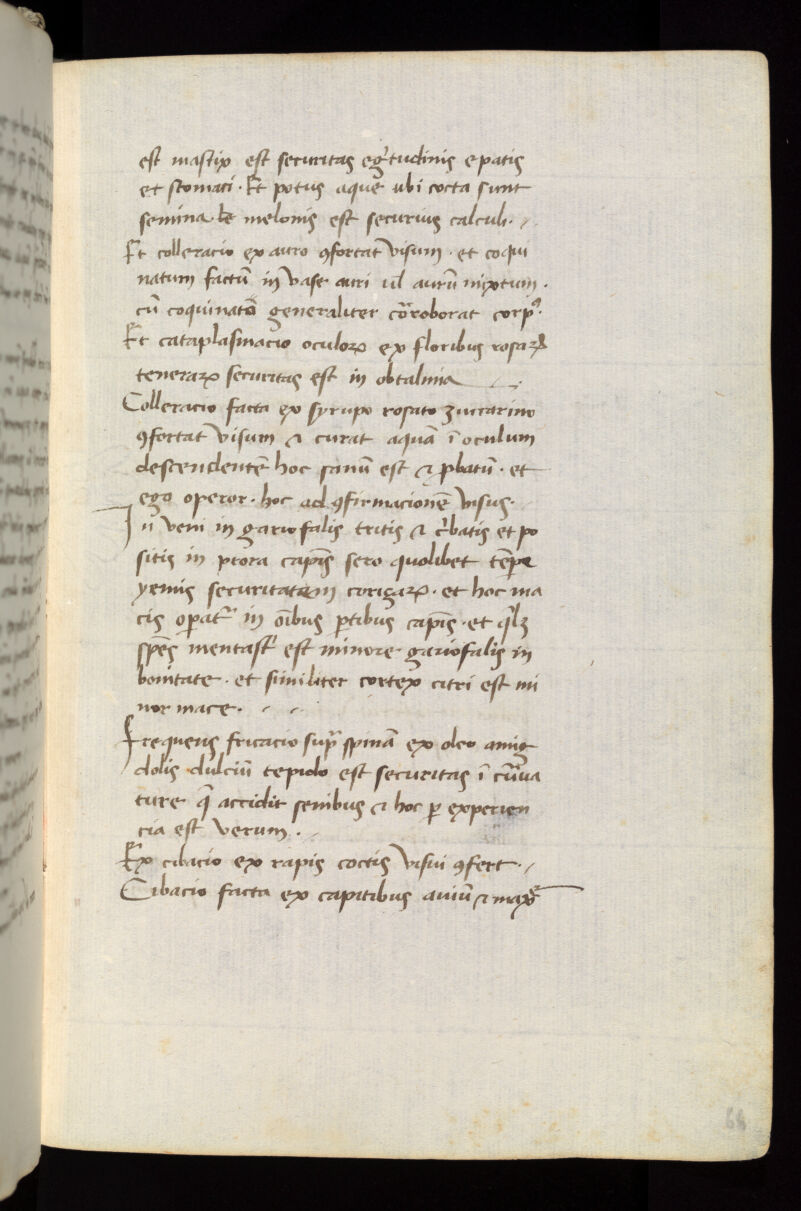 est mastix est securitas egᷓtudinis epatis
et stomaci · Et potus aque ubi cocta sunt
semina · melonis est securius calculi ·
Et colleracio ex auro ꝯfortat visum · et coqui
natum factū in vase auri ul aurū mixtum ·
cū coquinatō generaliter cōroborat corpꝰ ·
Et cataplasmacio oculoꝝ ex floribus rosaꝝ
teneraꝝ securitas est in obtalmia
Colleracio facta ex syrupo rosato zuccarino
ꝯfortat visum ⁊ curat aquā ī oculum
descendentē hoc sanū est ⁊ ꝓbatū · et
ego operor · hoc ad ꝯfirmacionē visus ·
In veni in gariofalis tritis ⁊ c̄batis et po
sitis in prora capis̄ sero quolibet tēpe
yemis securitatem corizaꝝ · et hoc ma
cis oꝑat᷑ in oībus ꝑtibus capis̄ · et
spēs mentast᷑ est minore gariofalis in
bonitate · et similiter cortex citri est mi
nor mace ·
Frequens fricacio supᷓ spinā ex oleo amig
dolis dulciū tepido est securitas ī cūua
ture q̄ accidit senibus ⁊ hoc ꝑ experien
cia est verum ·
Ex cibacio ex rapis coctis visui ꝯfert ·
Cibacio facta ex capitibus auiū ⁊ maxē
68